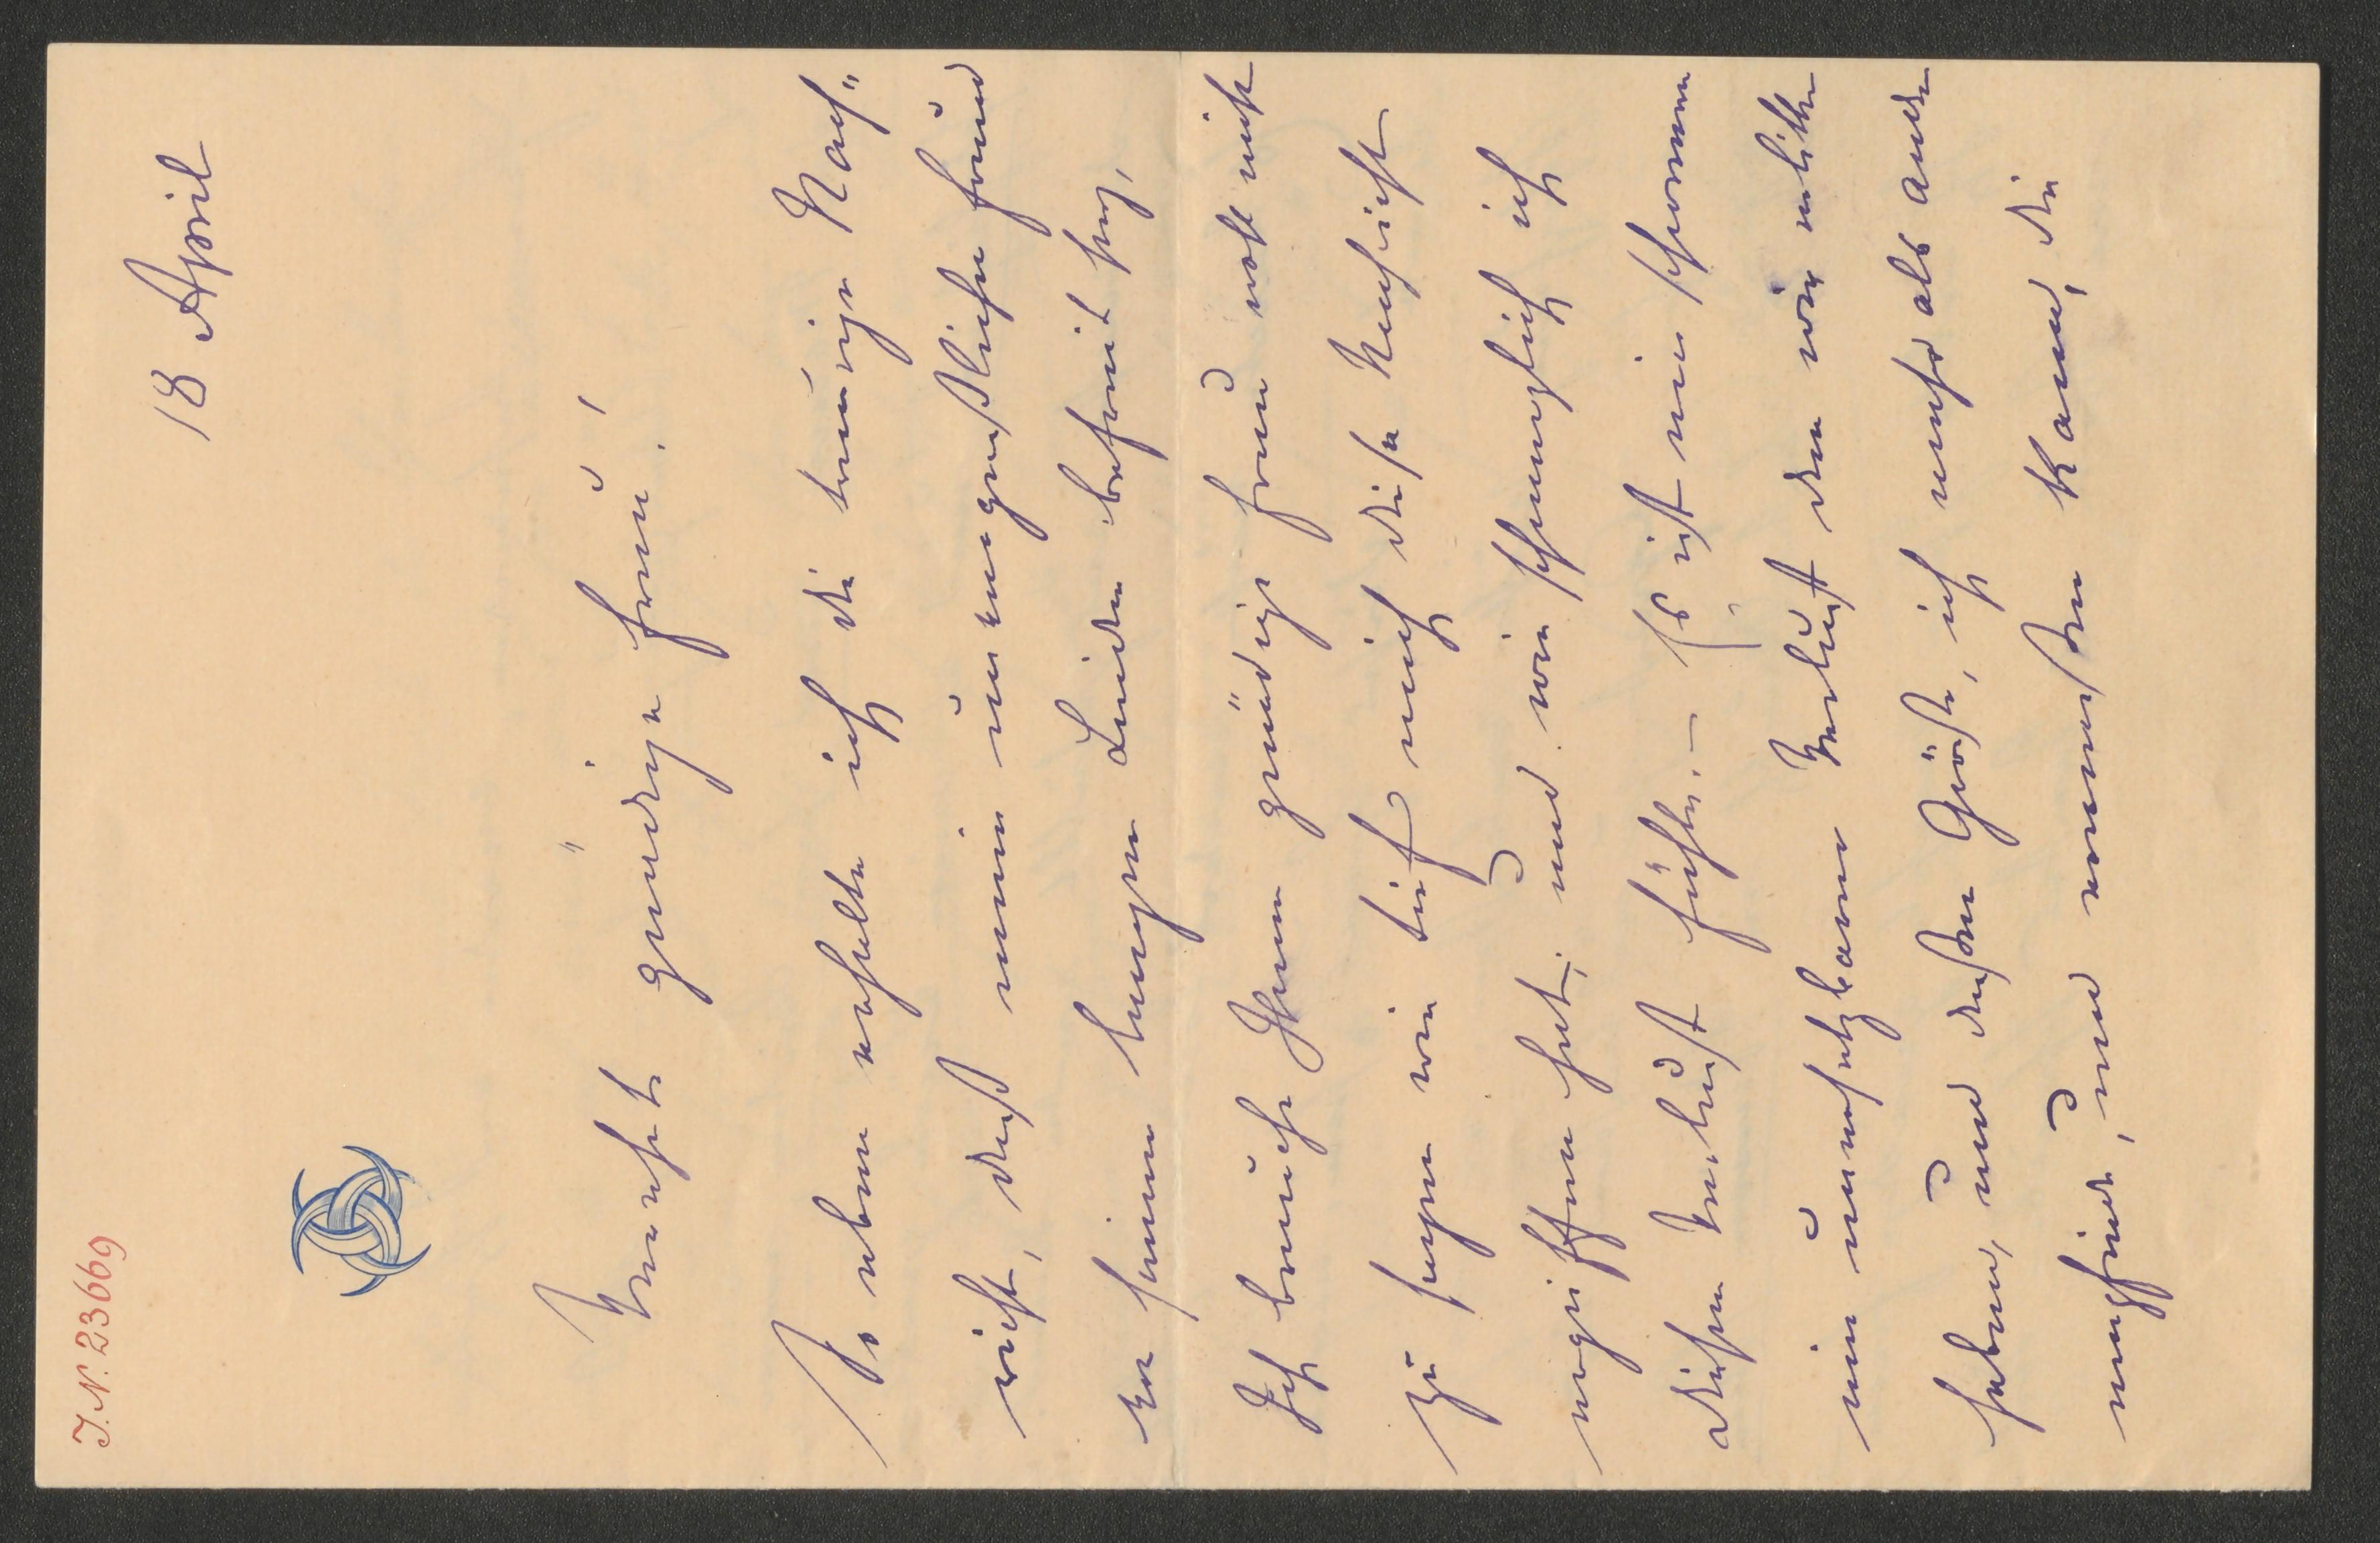 J.N. 23669
18 April
Verehrte gnädige Frau!
So eben erhalte ich die traurige Nach-
richt, daß mein unvergeßlicher Freund
seinen langen Leiden befreit sey,
Ich brauche Ihnen gnädige Frau wohl nicht
zu sagen wie tief mich diese Nachricht
ergriffen hat, und wie schmerzlich ich
diesen Verlust fühle. – Es ist ein schwerer
ein unersetzbarer Verlust den wir erlitten
haben, und dessen Größe, ich mehr als andere
empfinde, und ermessen kann, die